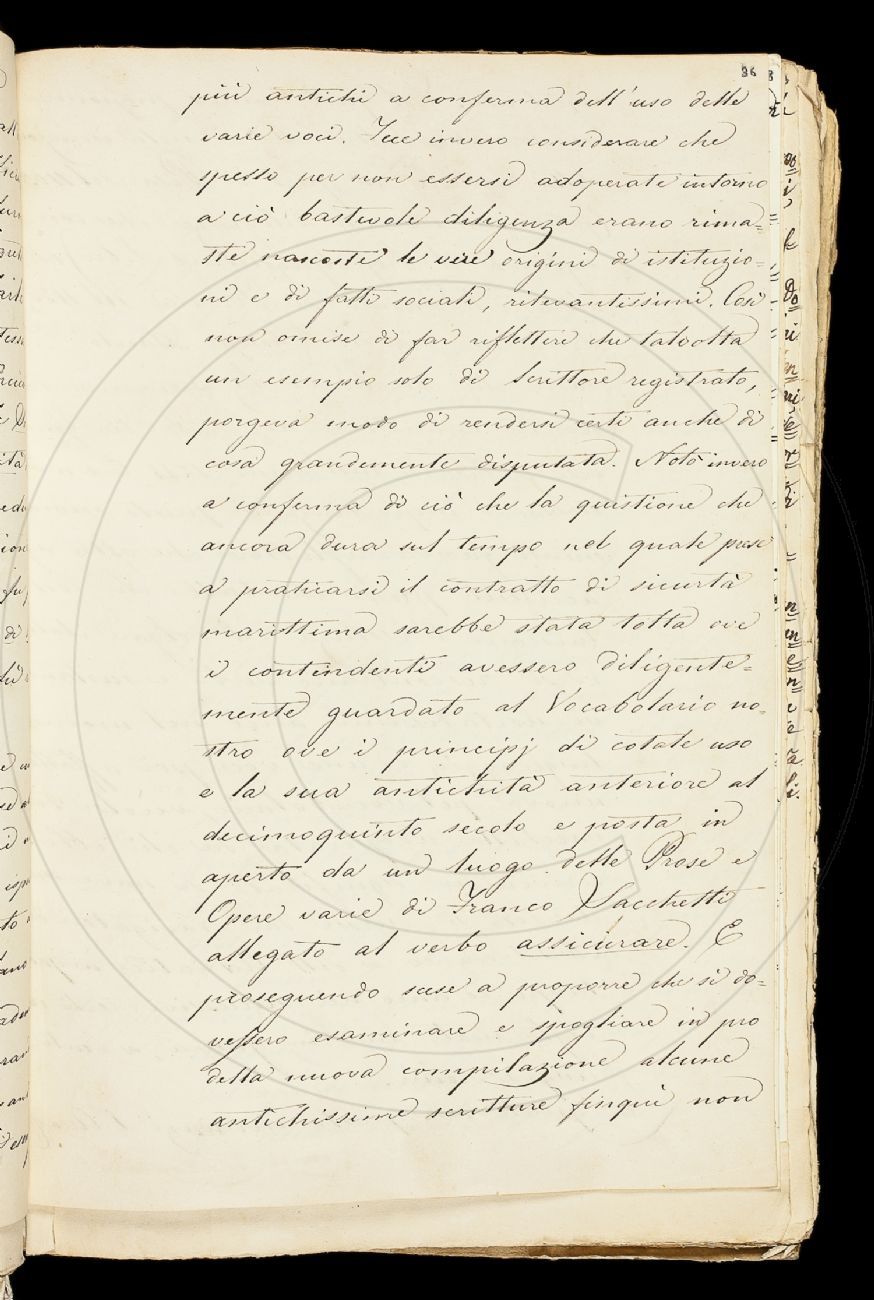 86
più antichi a conferma dell'uso delle
varie voci. Fece invero considerare che
spesso per non essersi adoperate intorno
a ciò bastevole diligenza erano rima=
ste nascoste le vere origini di istituzio=
ni e di fatti sociali, rilevantissimi. Così
non omise di far riflettere che talvolta
un esempio solo di Scrittore registrato,
porgeva modo di rendersi certi anche di
cosa grandemente disputata. Notò invero
a conferma di ciò che la quistione che
ancora dura sul tempo nel quale prese
a praticarsi il contratto di sicurtà
marittima sarebbe stata tolta ove
i contendenti avessero diligente=
mente guardato al Vocabolario no=
stro ove i principj di cotale uso
e la sua antichità anteriore al
decimoquinto secolo e posta in
aperto da un luogo delle Prose e
Opere varie di Franco Sacchetti
allegato al verbo assicurare. E
proseguendo scese a proporre che si do=
vessero esaminare e spogliare in pro
della nuova compilazione alcune
antichissime scritture finqui non